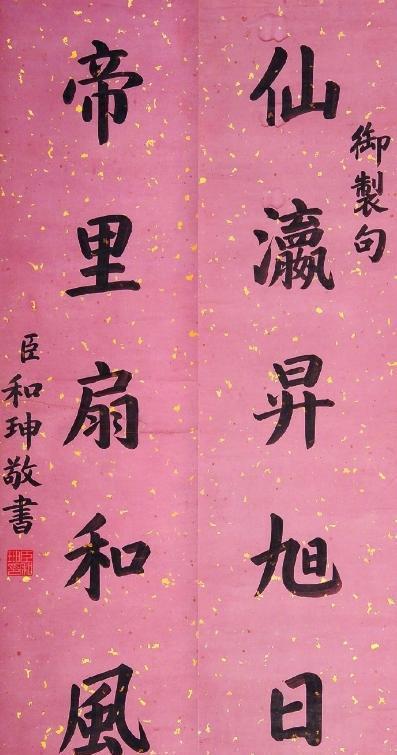 御製句
仙瀛昇旭日
帝里扇和風
臣和珅敬書